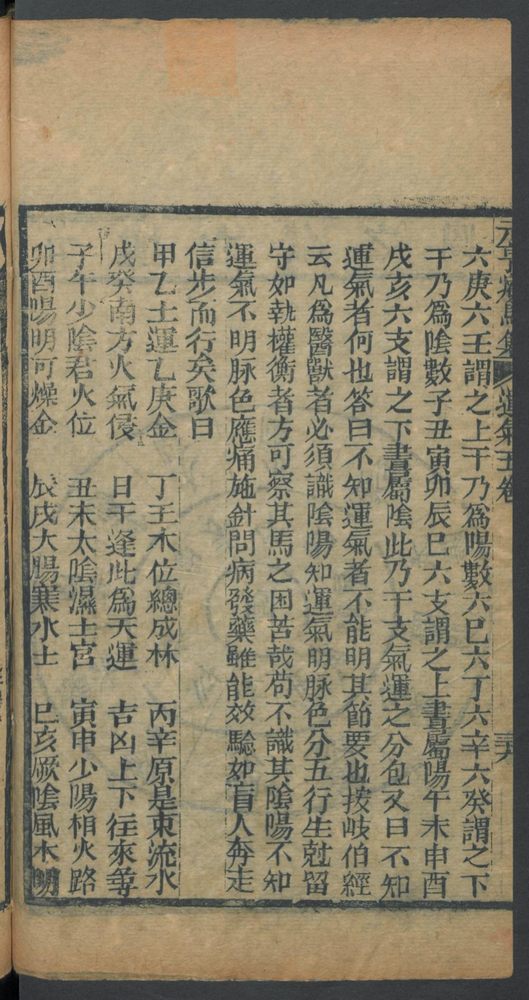 元亨療馬集 運氣五卷 三六
六庚六壬謂之上干乃爲陽數六巳六丁六辛六癸謂之下
干乃爲陰數子丑寅卯辰巳六支謂之上晝屬陽午未申酉
戌亥六支謂之下晝屬陰此乃干支氣運之分包又曰不知
運氣者何也答曰不知運氣者不能明其節要也按岐伯經
云凡爲醫獸者必須識陰陽知運氣明脉色分五行生尅留
守如執權衡者方可察其馬之困苦哉苟不識其陰陽不知
運氣不明脉色應痛施針問病發藥雖能效驗如盲人奔走
信步而行矣歌曰
甲乙土運乙庚金 丁壬木位總成林 丙辛原是東流水
戊癸南方火氣侵 日干逢此爲天運 吉凶上下往來尋
子午少陰君火位 丑未太陰濕土宮 寅申少陽相火路
卯酉陽明可燥金 辰戌大腸寒水土 巳亥厥陰風木明